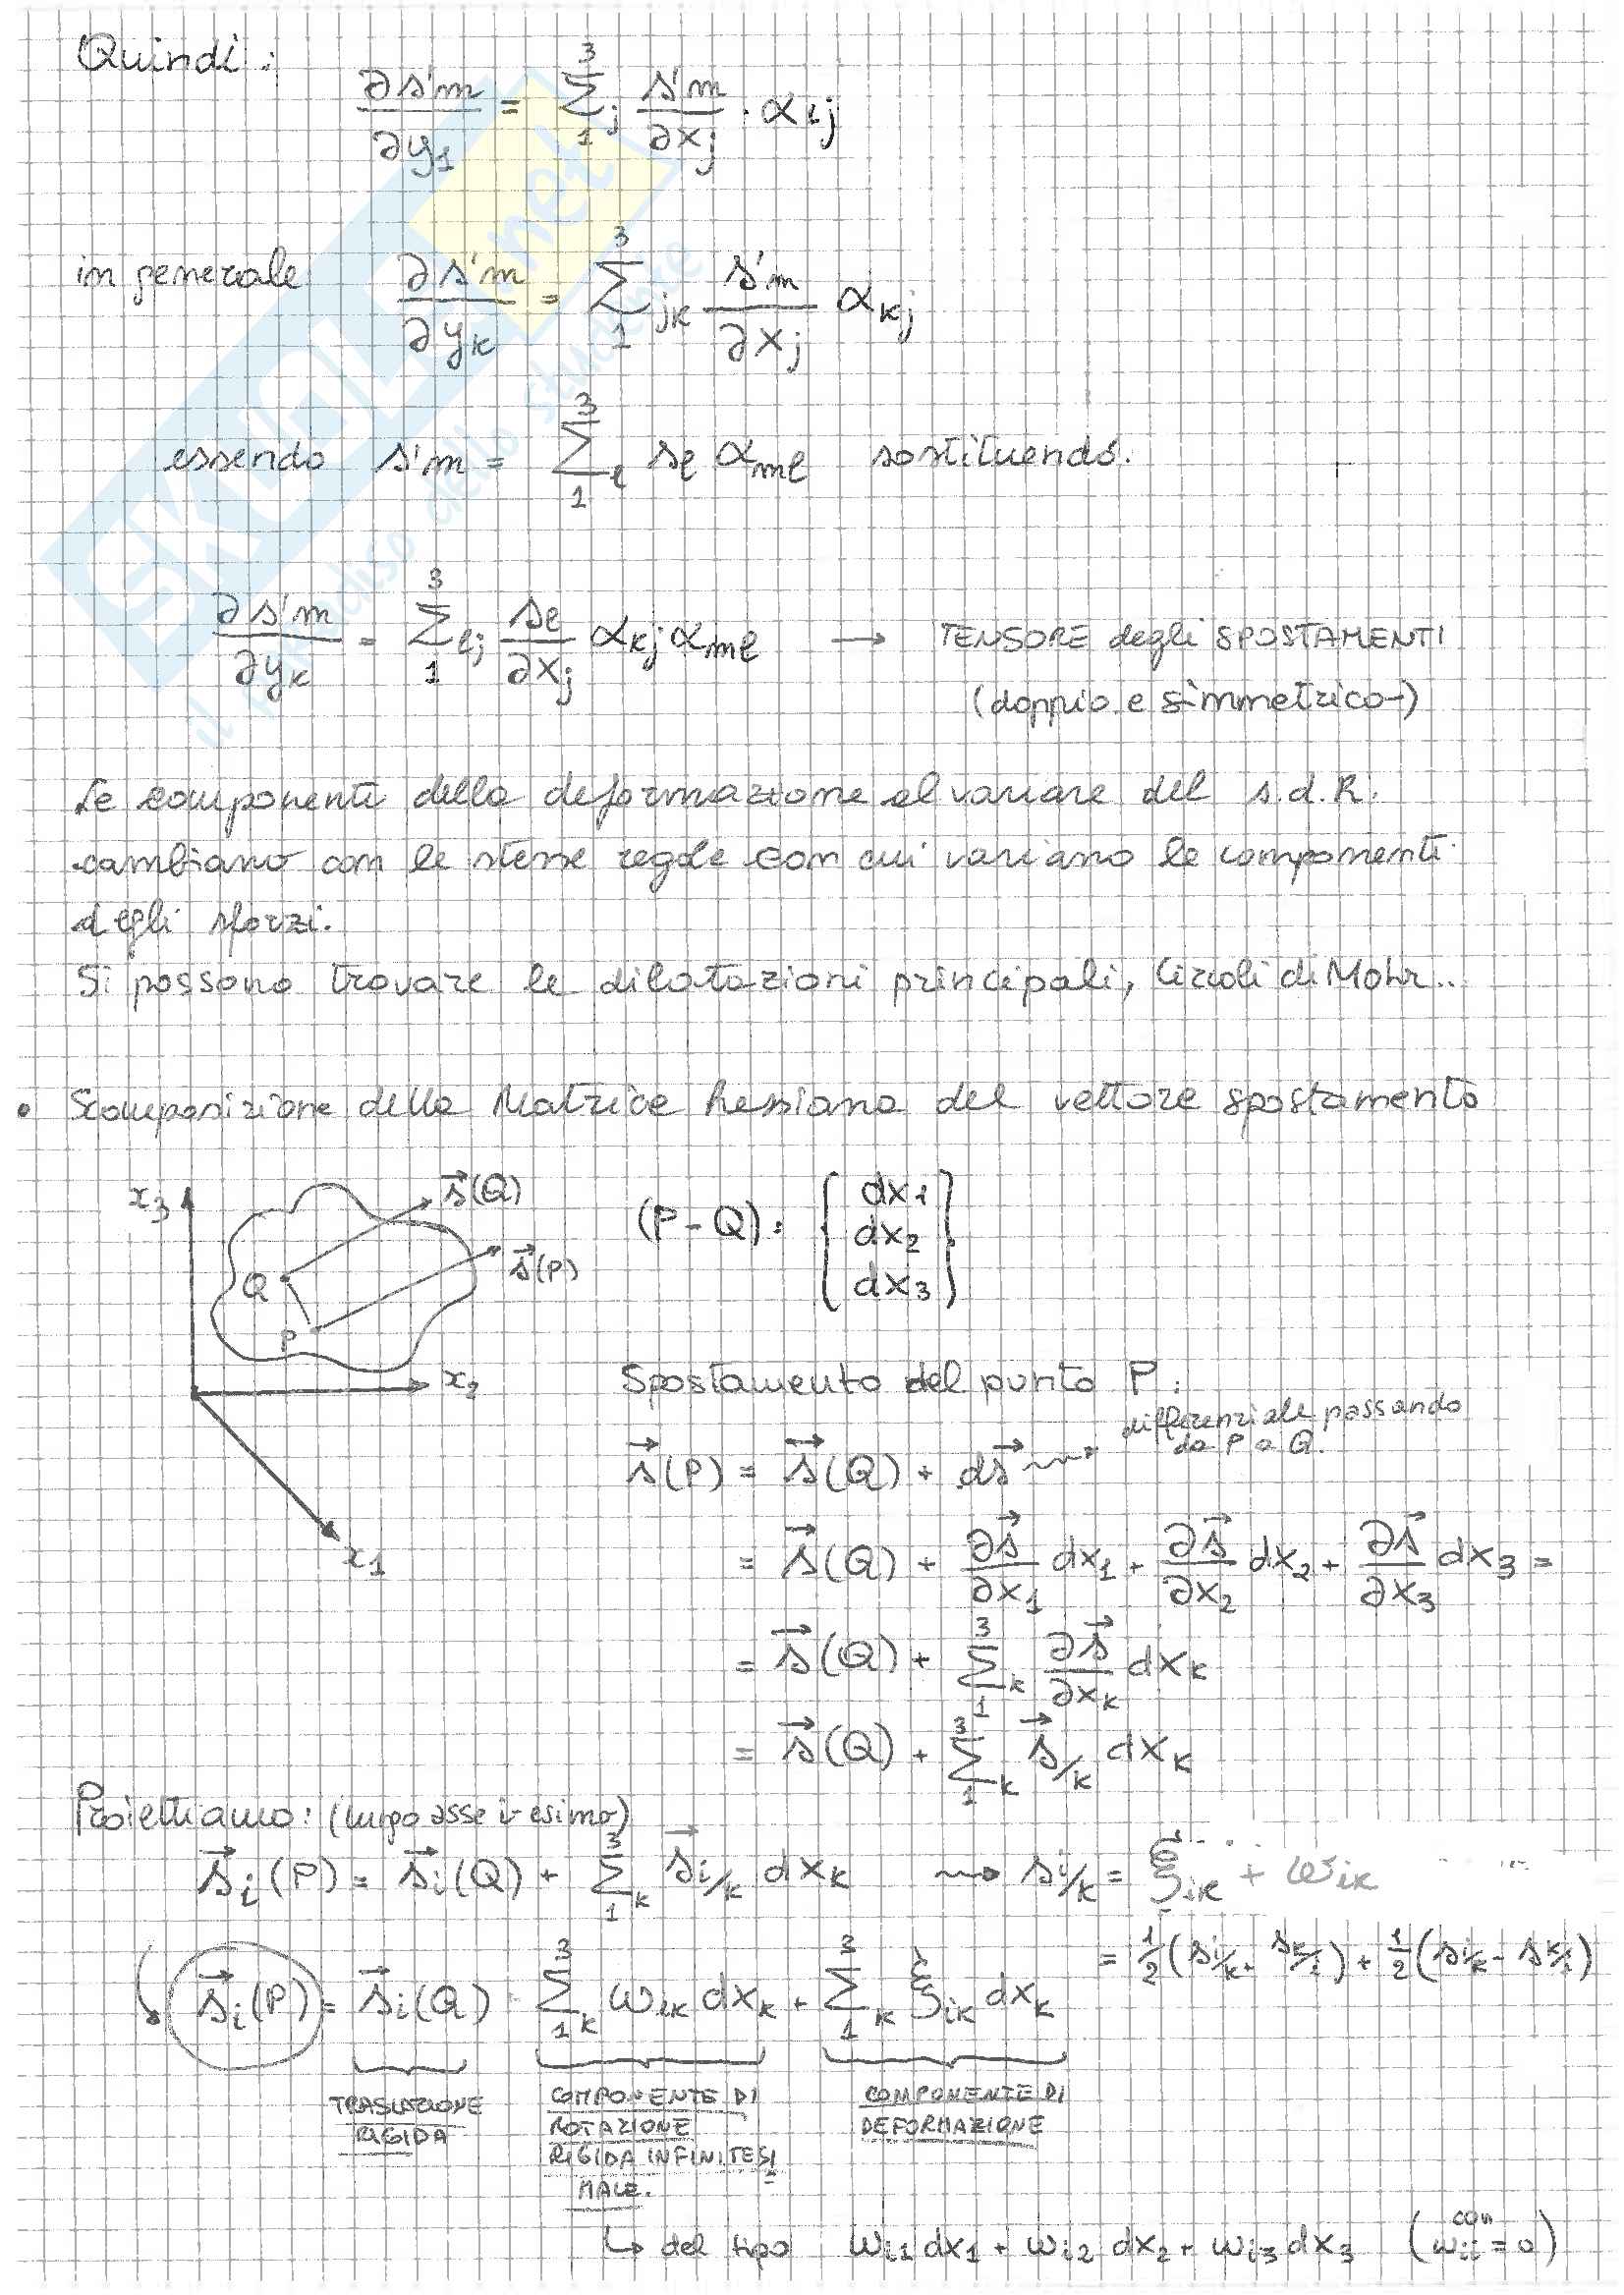 Quindi:
∂s'm/∂y1 = Σ(1→3)j s'm/∂xj · αij
in generale ∂s'm/∂yk = Σ(1→3)jk s'm/∂xj αkj
essendo s'm = Σ(1→3)l sl αml sostituendo.
∂s'm/∂yk = Σ(1→3)lj sl/∂xj αkj αml → TENSORE degli SPOSTAMENTI
(doppio e simmetrico)
Le componenti della deformazione al variare del s.d.R.
cambiano con le stesse regole con cui variano le componenti
degli sforzi.
Si possono trovare le dilatazioni principali, Circoli di Mohr..
• Scomposizione della Matrice hessiana del vettore spostamento
x3
s⃗(Q)
s⃗(P)
Q
P
x2
x1
(P-Q): {dx1
dx2
dx3}
Spostamento del punto P:
s⃗(P) = s⃗(Q) + ds⃗ ⇝ differenziale passando
da P a Q.
= s⃗(Q) + ∂s⃗/∂x1 dx1 + ∂s⃗/∂x2 dx2 + ∂s⃗/∂x3 dx3 =
= s⃗(Q) + Σ(1→3)k ∂s⃗/∂xk dxk
= s⃗(Q) + Σ(1→3)k s⃗/k dxk
Proiettiamo: (lungo asse i-esimo)
s⃗i(P) = s⃗i(Q) + Σ(1→3)k s⃗i/k dxk ⇝ si/k = ξik + ωik
= 1/2(si/k + sk/i) + 1/2(si/k - sk/i)
s⃗i(P) = s⃗i(Q) + Σ(1→3)k ωik dxk + Σ(1→3)k ξik dxk
TRASLAZIONE
RIGIDA
COMPONENTE DI
ROTAZIONE
RIGIDA INFINITESI
MALE.
COMPONENTE DI
DEFORMAZIONE
↳ del tipo ωi1 dx1 + ωi2 dx2 + ωi3 dx3 (con ωii = 0)
SKUOLA.net
il paradiso dello studente